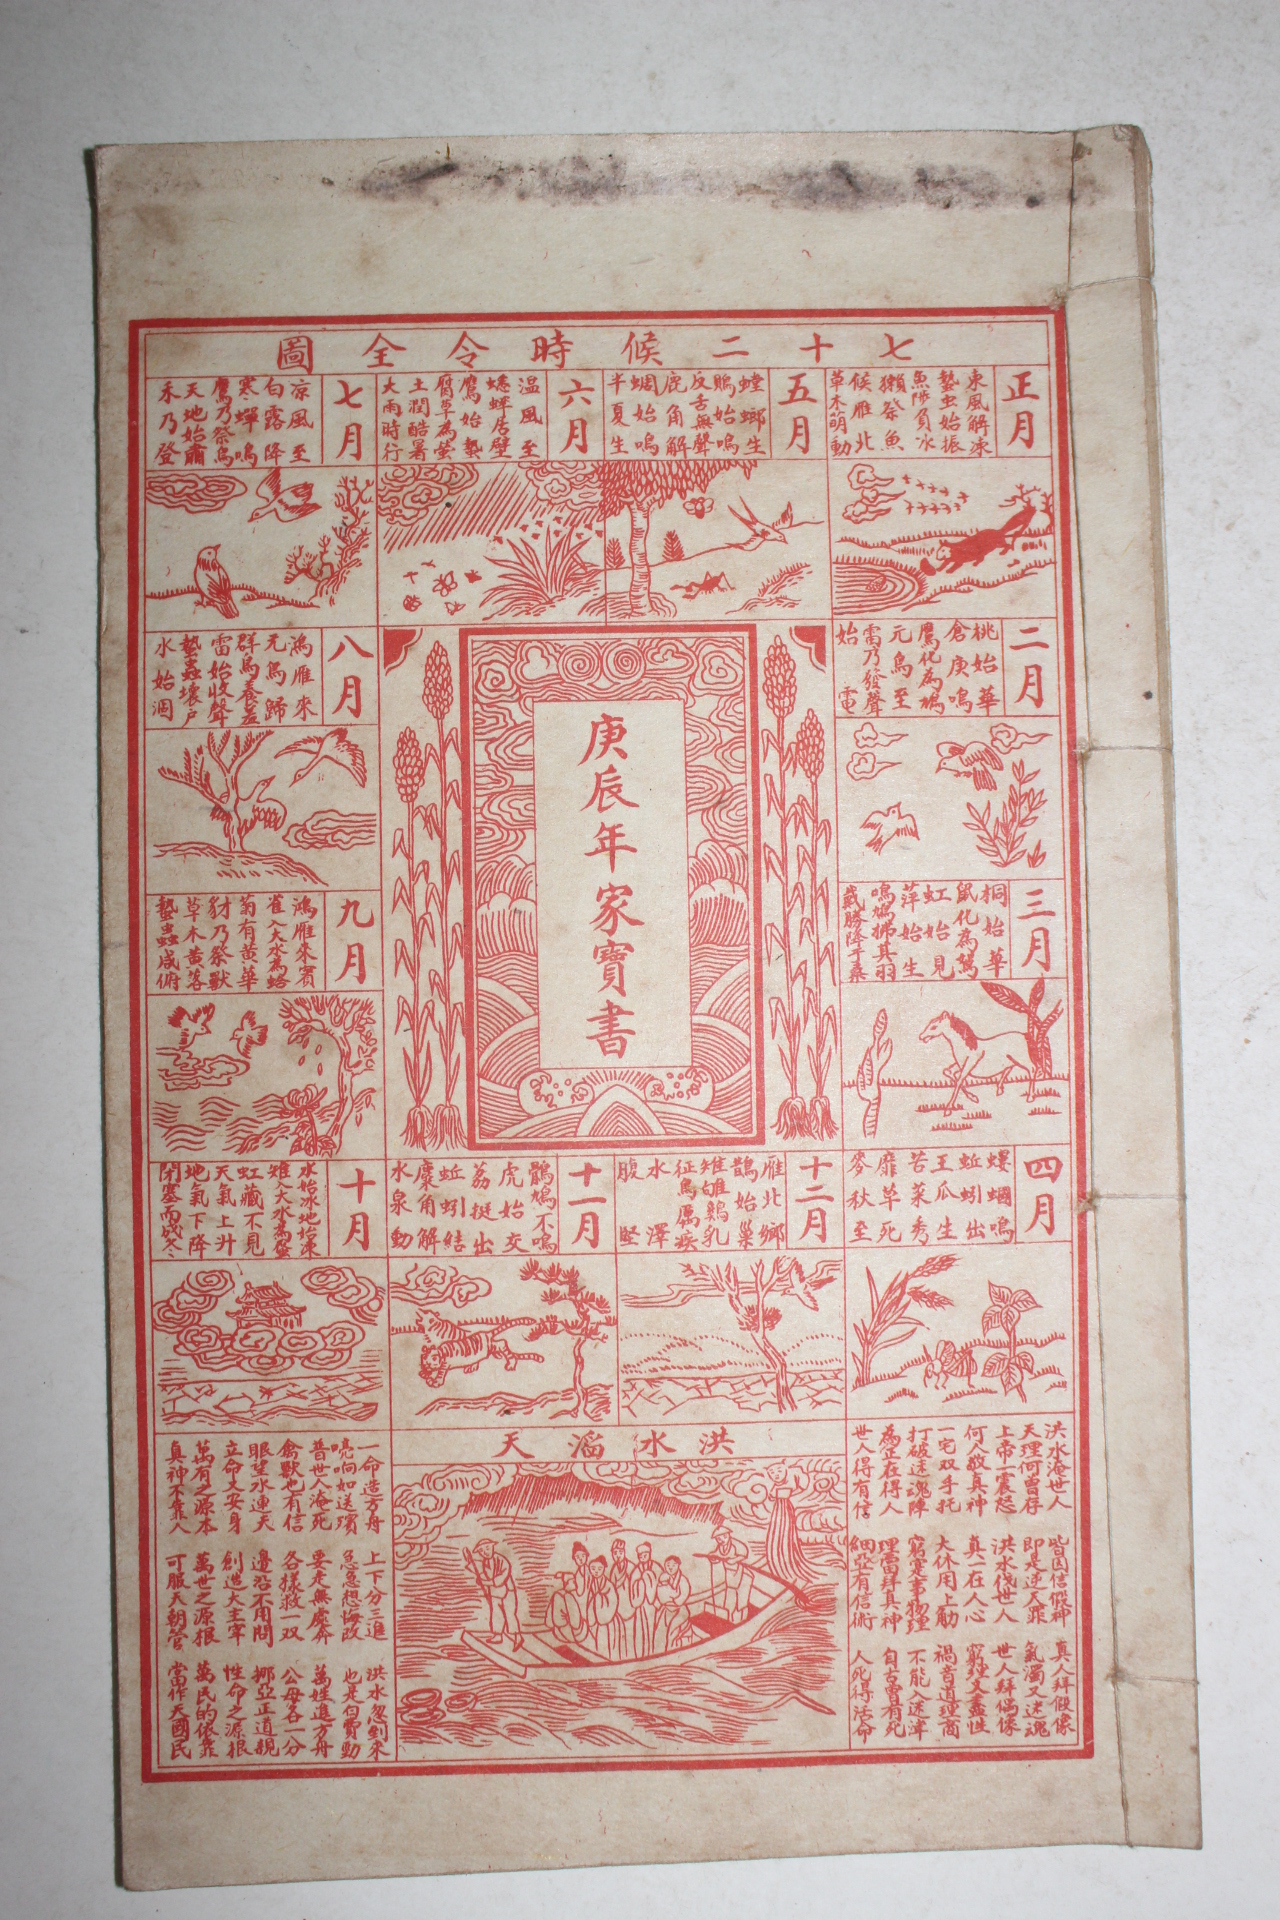 七十二候時令全圖
正月
東風解凍
蟄虫始振
魚陟負冰
獺祭魚
候雁北
草木萌動
五月
螳螂生
鵙始鳴
反舌無聲
鹿角解
蜩始鳴
半夏生
六月
温風至
蟋蟀居壁
鷹始摯
腐草為螢
土潤酷暑
大雨時行
七月
凉風至
白露降
寒蟬鳴
鷹乃祭鳥
天地始肅
禾乃登
二月
桃始華
倉庚鳴
鷹化為鳩
元鳥至
雷乃發聲
始電
八月
鴻雁來
元鳥歸
群鳥養羞
雷始收聲
蟄蟲壞戶
水始涸
庚辰年家寶書
三月
桐始華
鼠化為鴽
虹始見
萍始生
鳴鳩拂其羽
戴勝降于桑
九月
鴻雁來賓
雀入大水為蛤
菊有黃華
豺乃祭獸
草木黃落
蟄蟲咸俯
四月
螻蟈鳴
蚯蚓出
王瓜生
苦菜秀
靡草死
麥秋至
十二月
雁北鄉
鵲始巢
雉雊鷄乳
征鳥厲疾
水澤
腹堅
十一月
鶡鴠不鳴
虎始交
荔挺出
蚯蚓結
麋角解
水泉動
十月
水始冰地始凍
雉入大水為蜃
虹藏不見
天氣上升
地氣下降
閉塞而成冬
洪水滔天
洪水淹世人 皆因信假神 真人拜假像
天理何曾存 即是逆天罪 氣濁又迷魂
上帝一震怒 洪水伐世人 世人拜偶像
何人敬真神 真一在人心 窮經文盡性
一宅双手托 大休用上筋 禍音道理商
打破迷魂陣 窮定事物理 不能入迷津
為正在得人 理當拜真神 自古曾有死
世人得有信 細亞有信術 人死得活命
一命造方舟 上下分三進 洪水忽到來
喨响如送殯 急急想悔改 也是白費動
普世人淹死 要走無處奔 萬娃進方舟
禽獸也有信 各樣救一双 公母各一分
眼望水連天 邊沿不用問 挪亞正道親
立命又安身 創造大主宰 性命之源根
萬有之源本 萬世之源根 萬民的依靠
真神不靠人 可服天朝管 當作天國民